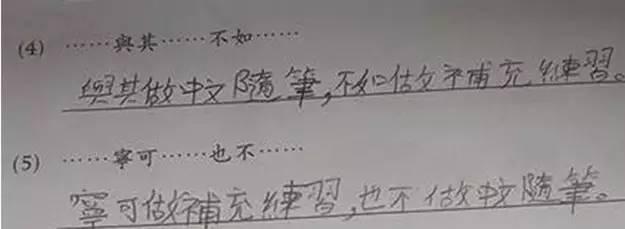 (4) ……與其……不如……
與其做中文隨筆,不如做補充練習。
(5) ……寧可……也不……
寧可做補充練習,也不做中文隨筆。